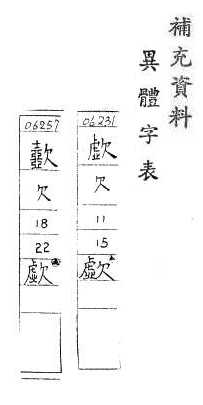 補充資料
異體字表
06231
欠
11
15
歔
06257
欠
18
22